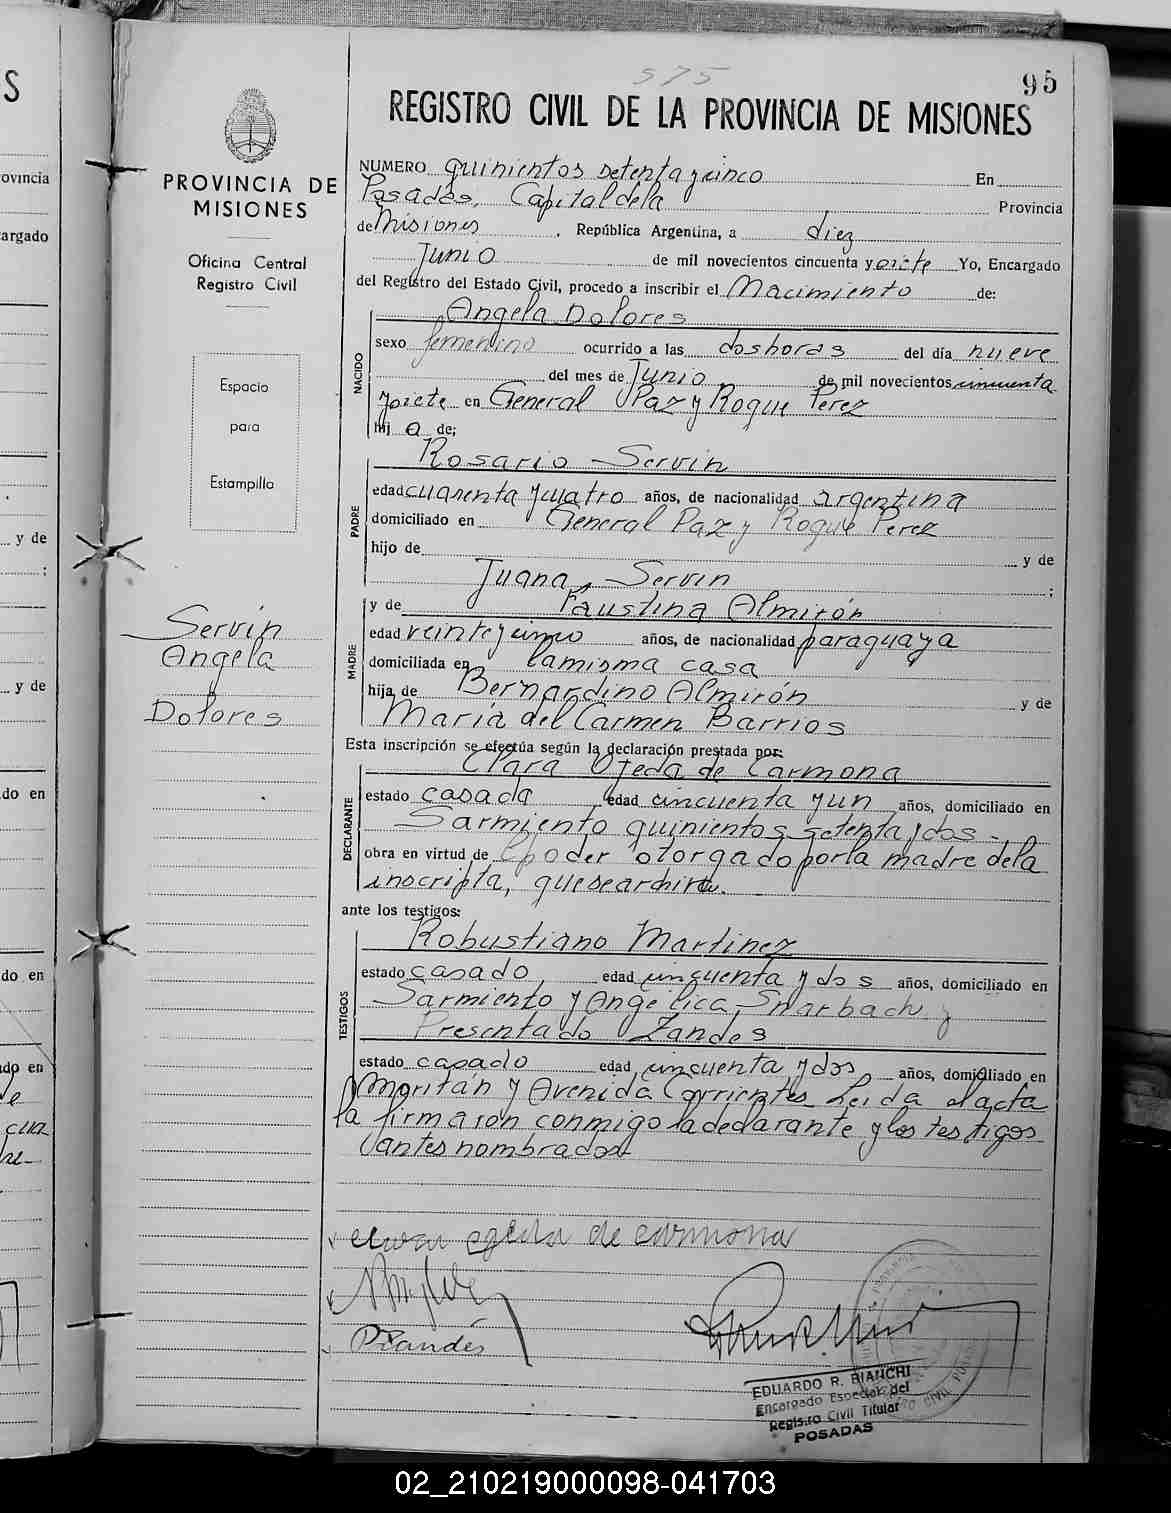 575
95
REGISTRO CIVIL DE LA PROVINCIA DE MISIONES
PROVINCIA DE
MISIONES
Oficina Central
Registro Civil
Espacio
para
Estampilla
Servin
Angela
Dolores
NUMERO quinientos setenta y cinco En
Posadas, Capital de la Provincia
de Misiones, República Argentina, a diez
Junio de mil novecientos cincuenta y siete Yo, Encargado
del Registro del Estado Civil, procedo a inscribir el Nacimiento de:
Angela Dolores
NACIDO
sexo femenino ocurrido a las dos horas del día nueve
del mes de Junio de mil novecientos cincuenta
y siete en General Paz y Roque Perez
hij a de;
Rosario Servin
PADRE
edad cuarenta y cuatro años, de nacionalidad argentina
domiciliado en General Paz y Roque Perez
hijo de y de
Juana Servin ;
y de Faustina Almirón
MADRE
edad veinte y cinco años, de nacionalidad paraguaya
domiciliada en la misma casa
hija de Bernardino Almirón y de
María del Carmen Barrios
Esta inscripción se efectúa según la declaración prestada por:
Clara Ojeda de Carmona
DECLARANTE
estado casada edad cincuenta y un años, domiciliado en
Sarmiento quinientos setenta y dos -
obra en virtud de poder otorgado por la madre de la
inscripta, que se archiva.
ante los testigos:
Robustiano Martinez
TESTIGOS
estado casado edad cincuenta y dos años, domiciliado en
Sarmiento y Angelica, y
Presentado Zandes
estado casado edad cincuenta y dos años, domiciliado en
Moritán y Avenida Corrientes Leida el acta
la firmaron conmigo la declarante y los testigos
antes nombrados
clara ojeda de carmona
PZandés
EDUARDO R. BIANCHI
Encargado Especial del
Registro Civil Titular
POSADAS
02_210219000098-041703